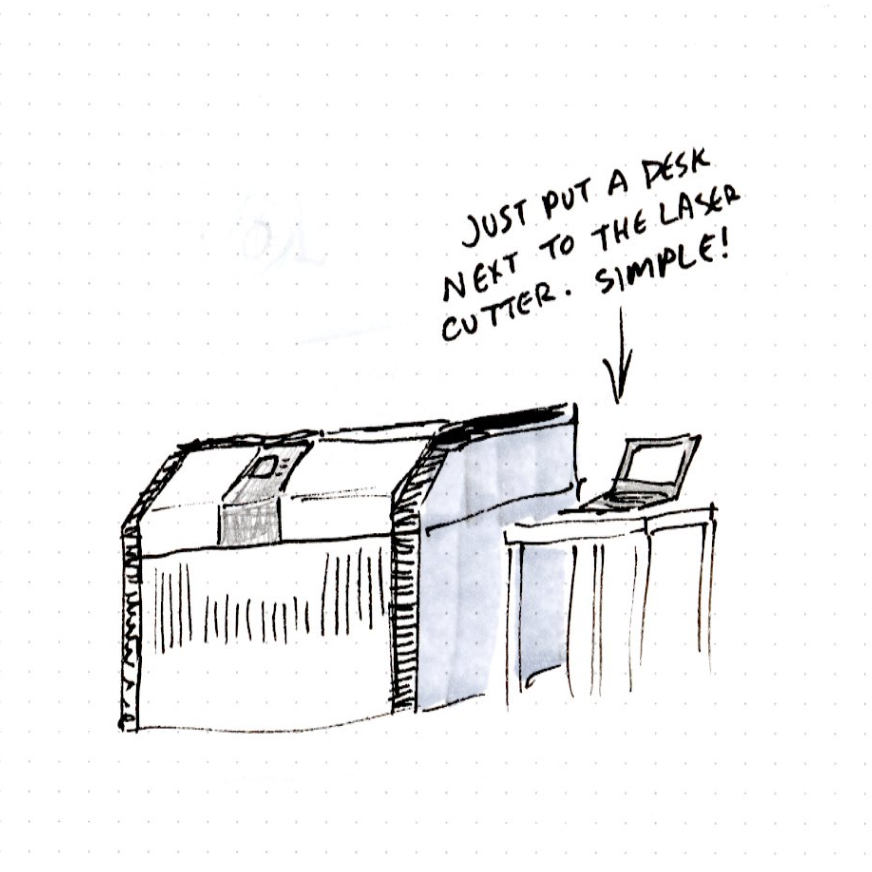 JUST PUT A DESK
NEXT TO THE LASER
CUTTER. SIMPLE!